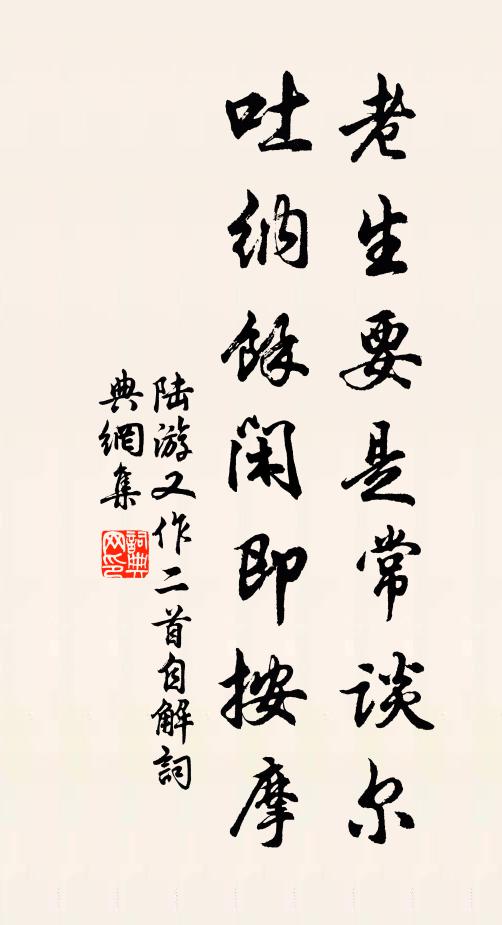 老生要是常谈尔
吐纳餘闲即按摩
陆游又作二首自解詞
典網集
詞典网印